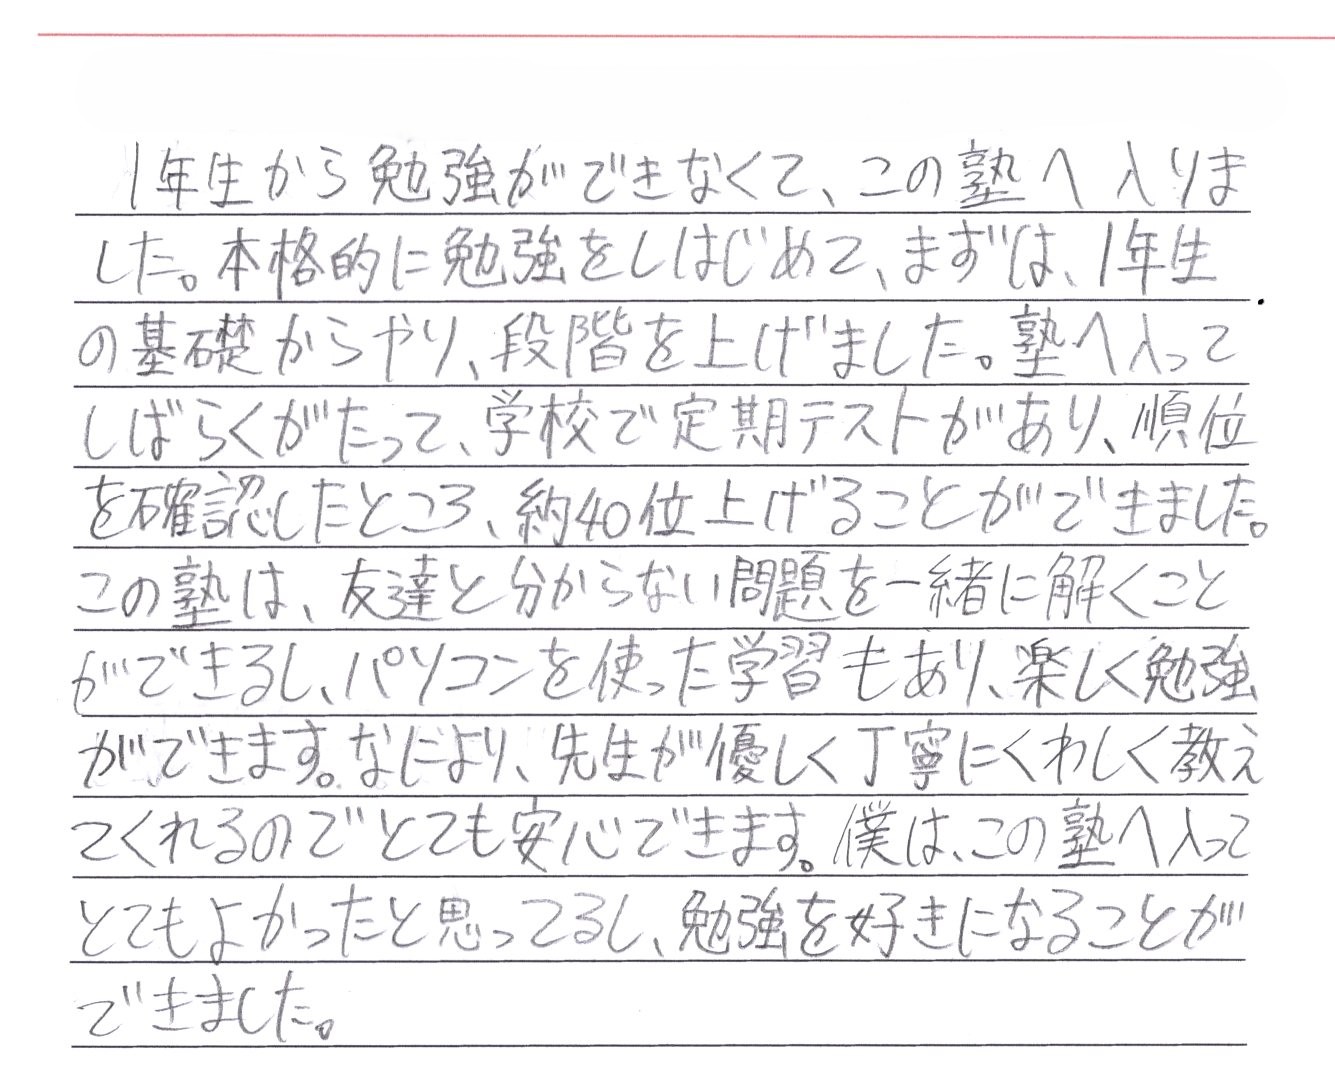 1年生から勉強ができなくて、この塾へ入りま
した。本格的に勉強をしはじめて、まずは、1年生
の基礎からやり、段階を上げました。塾へ入って
しばらくがたって、学校で定期テストがあり、順位
を確認したところ、約40位上げることができました。
この塾は、友達と分からない問題を一緒に解くこと
ができるし、パソコンを使った学習もあり、楽しく勉強
ができます。なにより、先生が優しく丁寧にくわしく教え
てくれるのでとても安心できます。僕は、この塾へ入って
とてもよかったと思ってるし、勉強を好きになることが
できました。